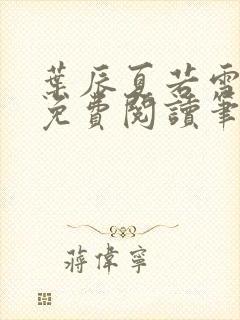 葉辰夏若雪
免費閱讀筆
蔣偉寧